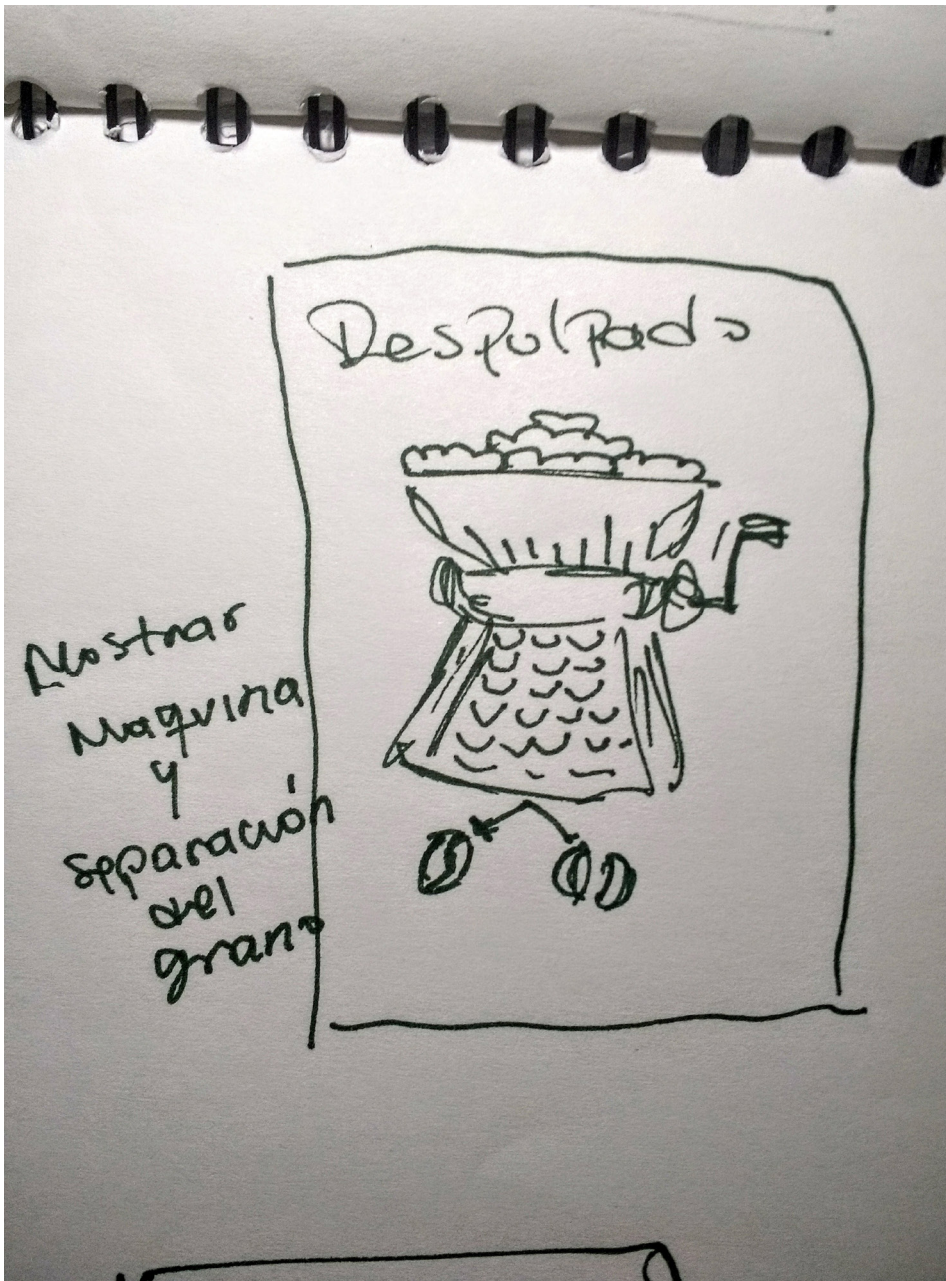 Despulpado
Mostrar
Maquina
y
separación
del
grano